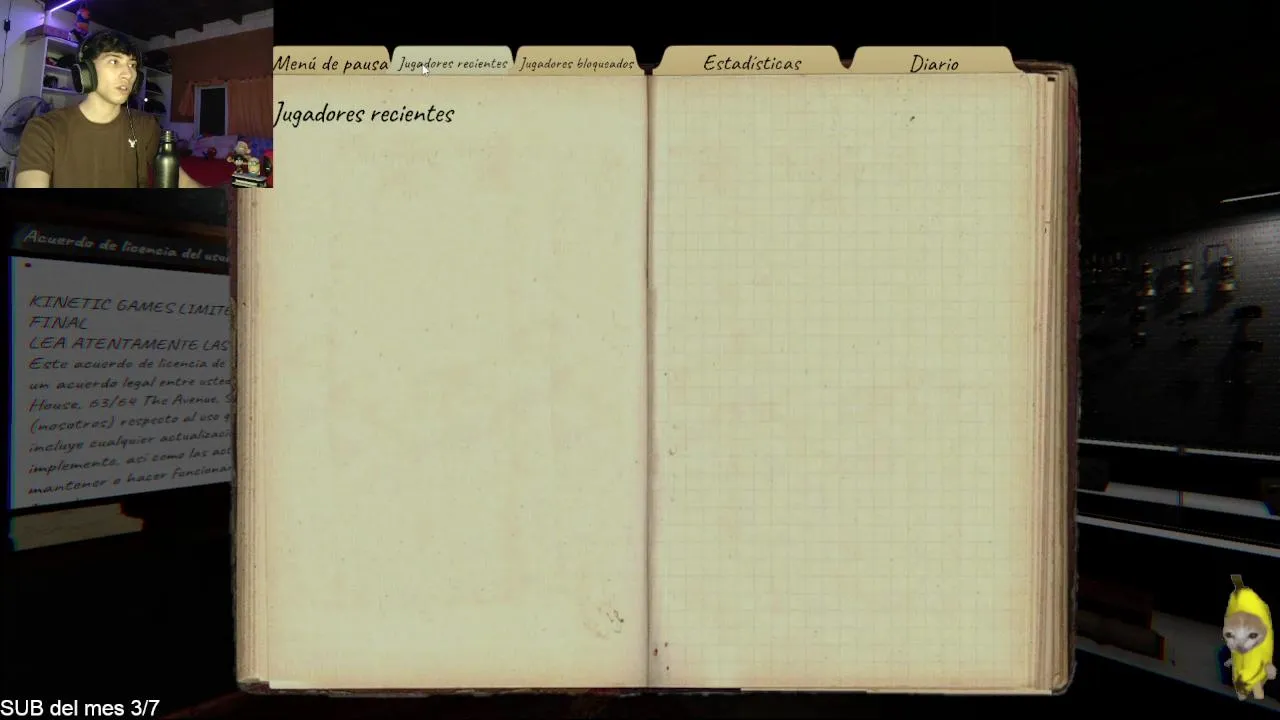 Menú de pausa
Jugadores recientes
Jugadores bloqueados
Estadísticas
Diario
Jugadores recientes
Acuerdo de licencia del
KINETIC GAMES
FINAL
LEA ATENTAMENTE LAS
Este acuerdo de licencia de
un acuerdo legal entre
House, 63/64 The Avenue,
(nosotros) respecto al uso
incluye cualquier
implemento, así como las
mantener o hacer
SUB del mes 3/7